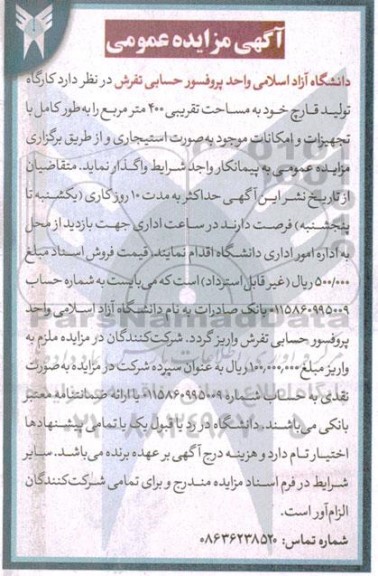 آگهی مزایده عمومی
دانشگاه آزاد اسلامی واحد پروفسور حسابی تفرش در نظر دارد کارگاه
تولید قارچ خود به مساحت تقریبی ۴۰۰ متر مربع را به طور کامل با
تجهیزات و امکانات موجود به صورت استیجاری و از طریق برگزاری
مزایده عمومی به پیمانکار واجد شرایط واگذار نماید. متقاضیان
از تاریخ نشر این آگهی حداکثر به مدت ۱۰ روز کاری (یکشنبه تا
پنجشنبه) فرصت دارند در ساعت اداری جهت بازدید از محل
به اداره امور اداری دانشگاه اقدام نمایند، قیمت فروش اسناد مبلغ
۵۰۰/۰۰۰ ریال (غیر قابل استرداد) است که می‌بایست به شماره حساب
۰۱۱۵۸۶۰۹۹۵۰۰۹ بانک صادرات به نام دانشگاه آزاد اسلامی واحد
پروفسور حسابی تفرش واریز گردد. شرکت‌کنندگان در مزایده ملزم به
واریز مبلغ ۱۰۰,۰۰۰,۰۰۰ ریال به عنوان سپرده شرکت در مزایده به صورت
نقدی به حساب شماره ۰۱۱۵۸۶۰۹۹۵۰۰۹ یا ارائه ضمانتنامه معتبر
بانکی می‌باشند. دانشگاه در رد یا قبول یک یا تمامی پیشنهادها
اختیار تام دارد و هزینه درج آگهی بر عهده برنده می‌باشد. سایر
شرایط در فرم اسناد مزایده مندرج و برای تمامی شرکت‌کنندگان
الزام‌آور است.
شماره تماس: ۰۸۶۳۶۲۳۸۵۲۰
ParsNamadData